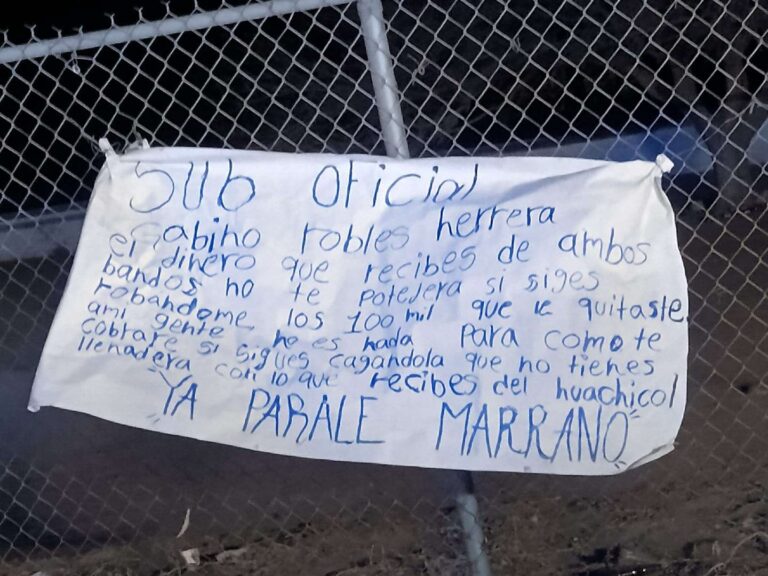 SUb Oficial
Gabino robles herrera
el dinero que recibes de ambos
bandos no te potejera si siges
robandome los 100 mil que le quitaste
ami gente no es nada para como te
cobrare si sigues cagandola que no tienes
llenadera con lo que recibes del huachicol
"YA PARALE MARRANO"